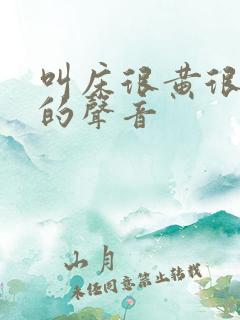 叫床很黄很
的聲音
山月
未经同意禁止转载